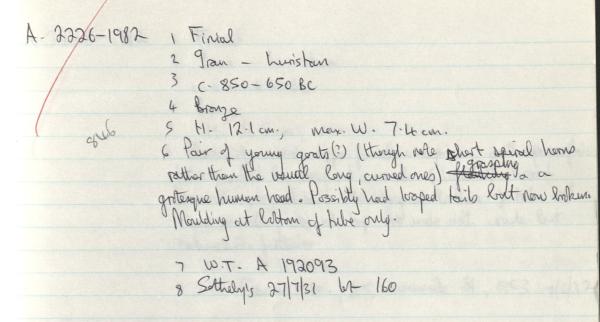 A. 2226-1982 1 Finial
2 Iran - Luristan
3 c. 850-650 BC
4 Bronze
5 H. 12.1 cm, max. W. 7.4 cm.
6 Pair of young goats(?) (though note short spiral horns
rather than the usual long, curved ones) grasping a a
grotesque human head. Possibly had looped tails but now broken
Moulding at bottom of tube only.
7 W.T. A 192093
8 Sotheby's 27/7/31 lot 160